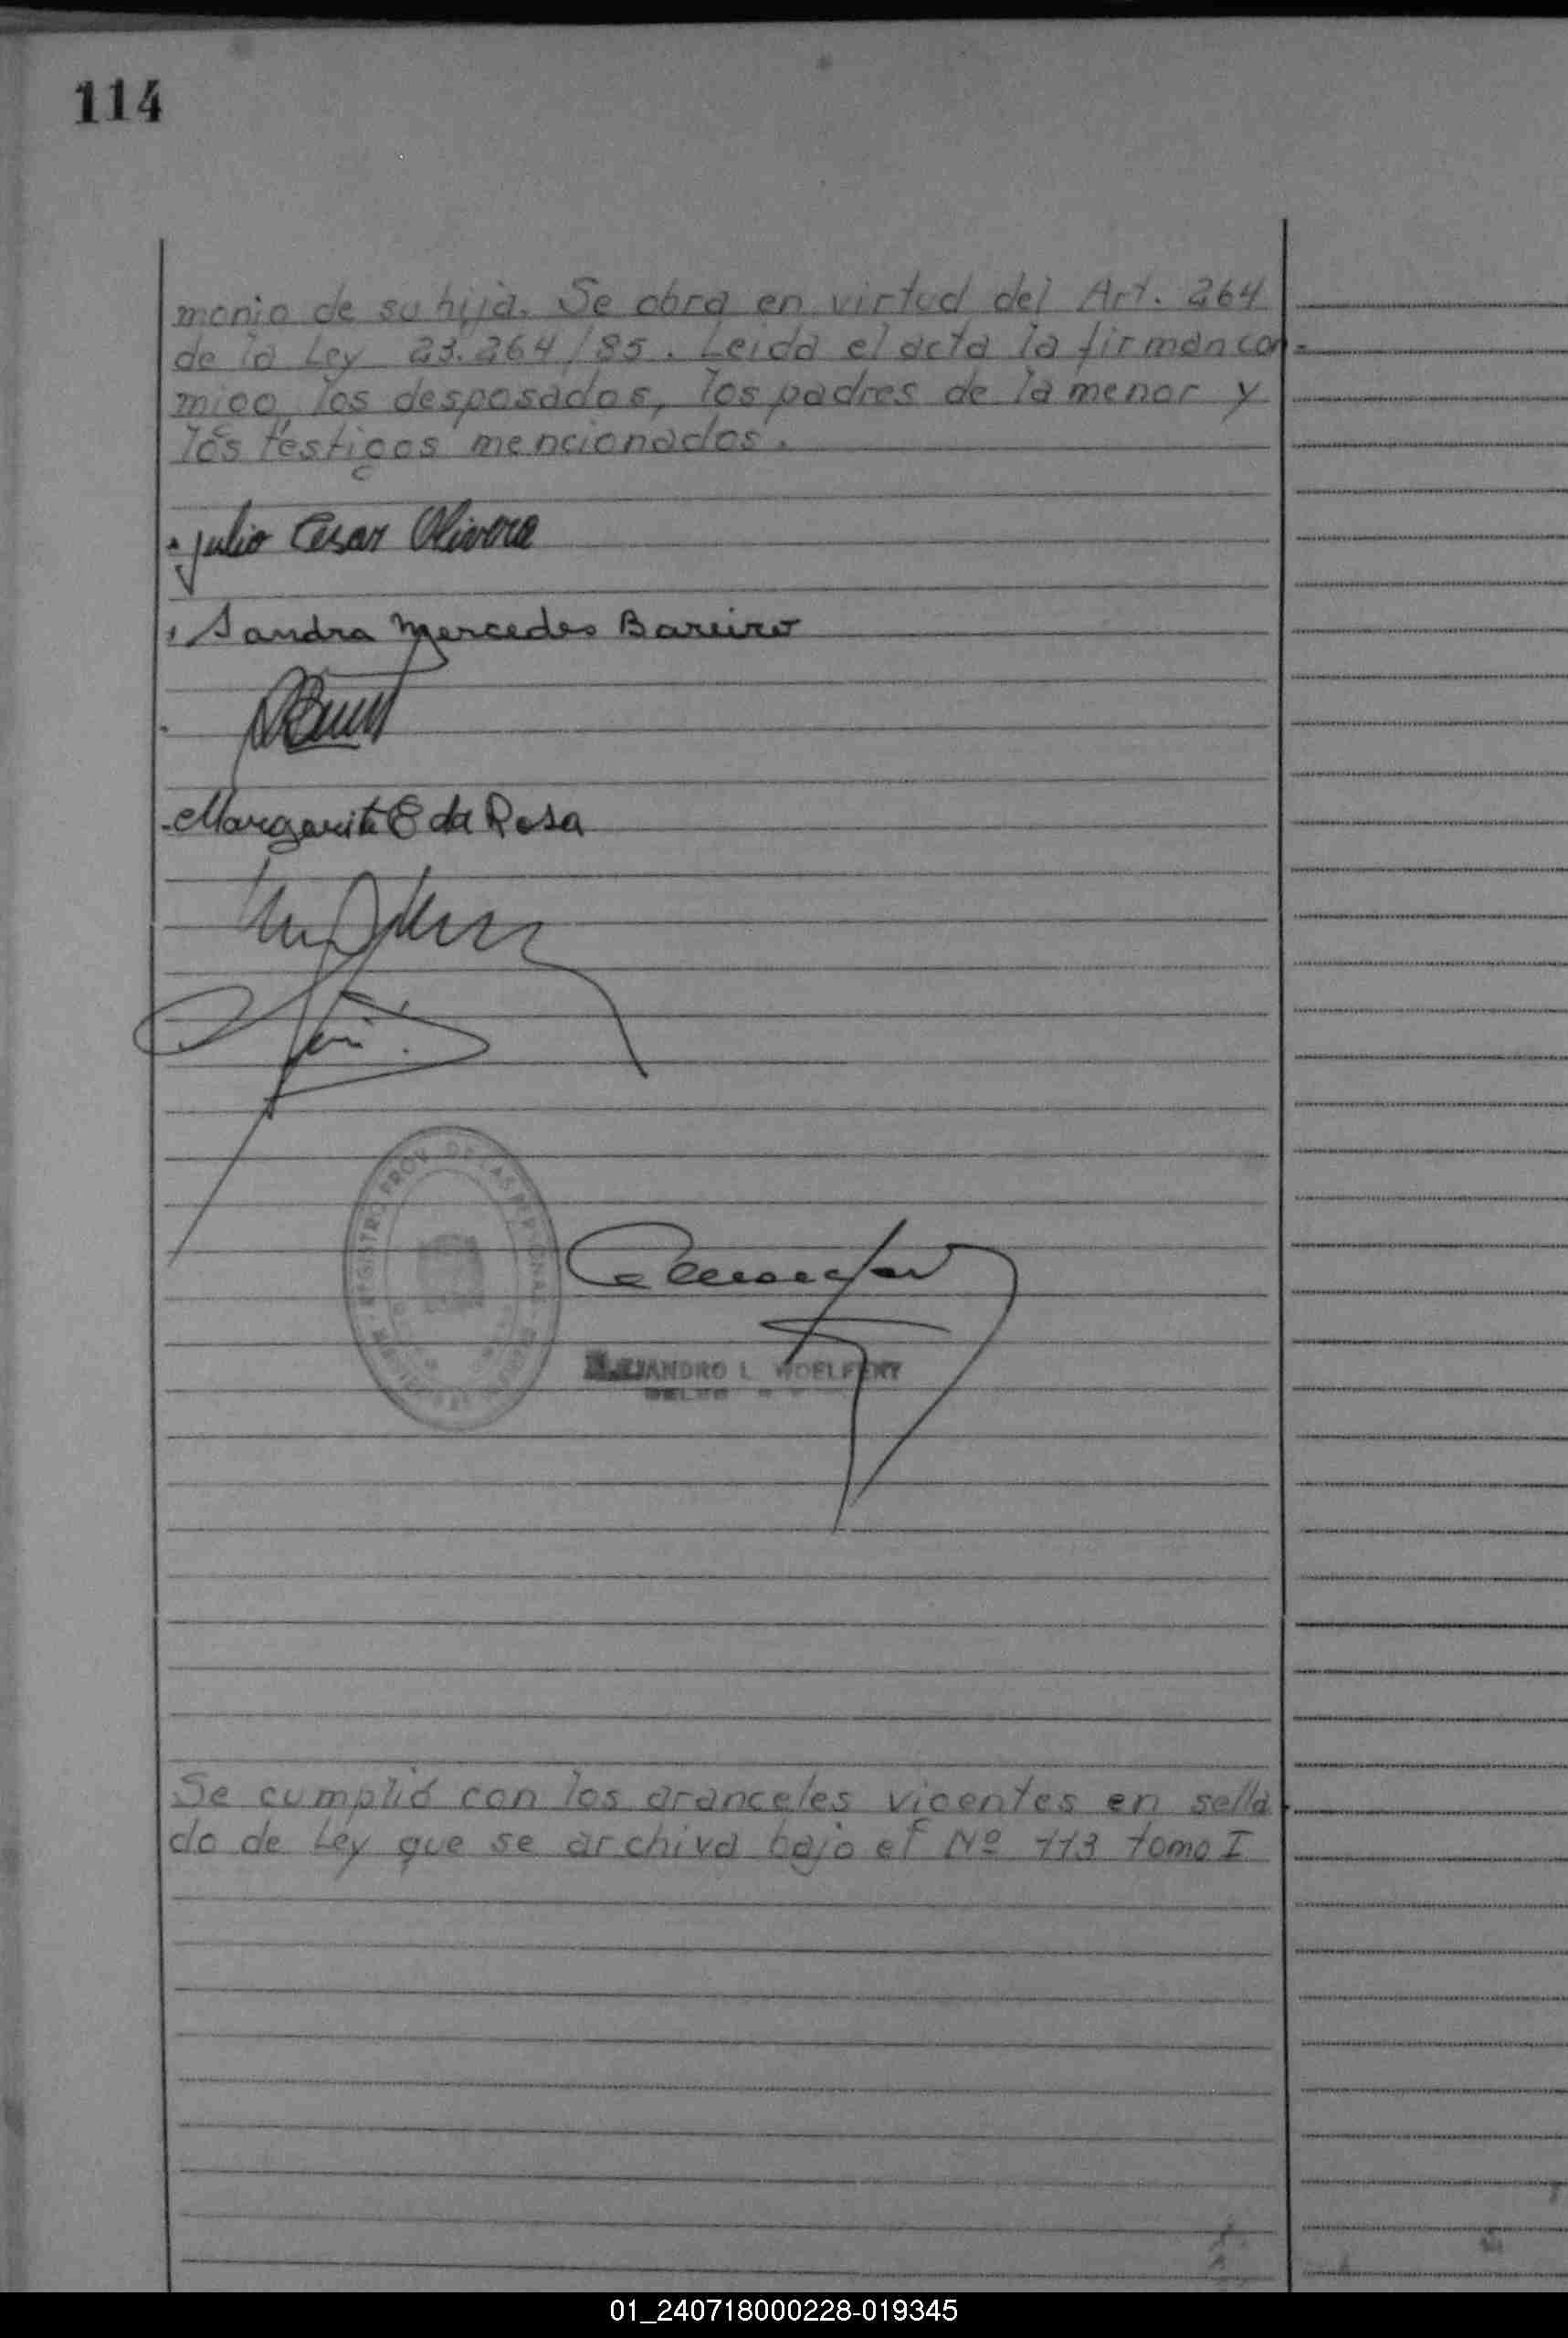 114
monio de su hija. Se obra en virtud del Art. 264
de la Ley 23.264/85. Leida el acta la firman con-
migo, los desposados, los padres de la menor y
los testigos mencionados.
Julio Cesar Olivera
Sandra Mercedes Bareiro
Margarita E da Rosa
REGISTRO PROV. DE LAS PERSONAS
ALEJANDRO L WOELFERT
Se cumplió con los aranceles vigentes en sella
do de Ley que se archiva bajo el Nº 113 tomo I
01_240718000228-019345